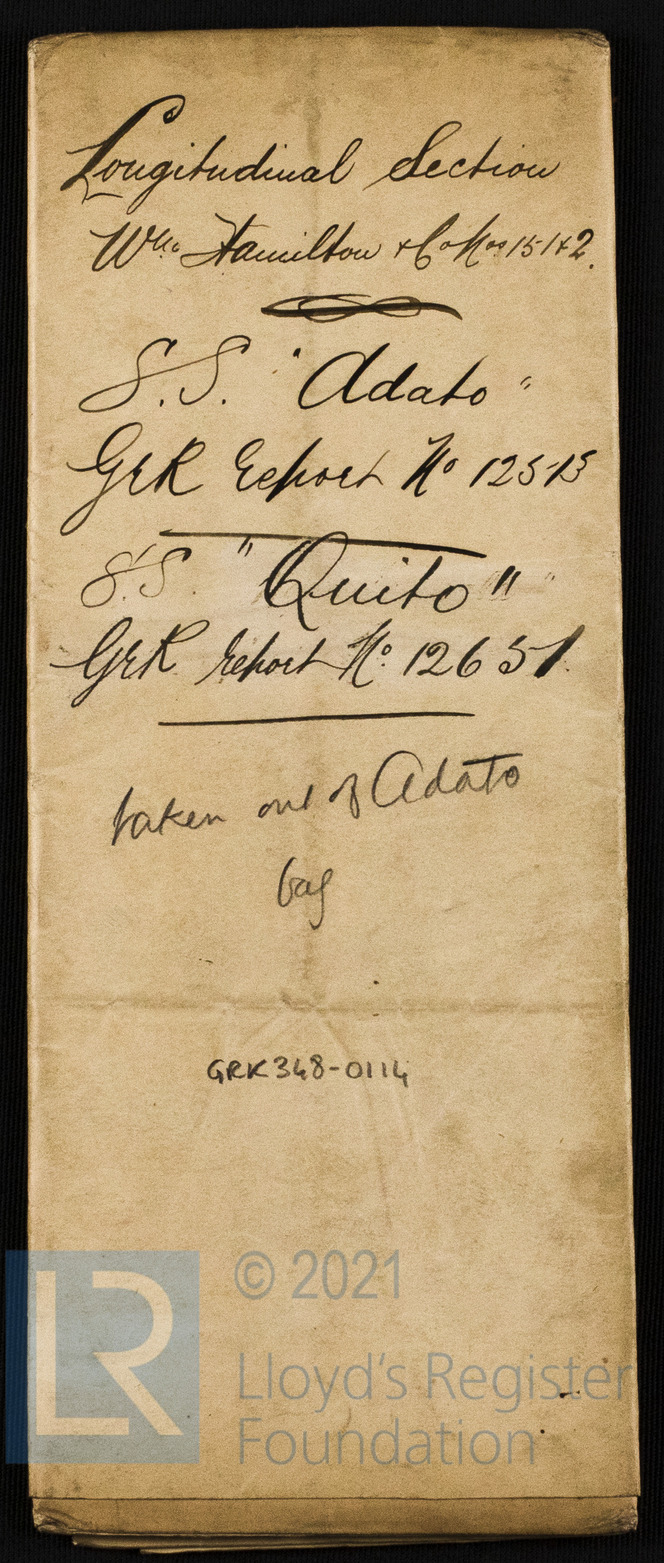 Longitudinal Section
Wm Hamilton & Co Nos 151+2.
S.S. "Adato"
GRK Report No 12515
S.S. "Quito"
GRK Report No. 12651.
taken out of Adato
bag
GRK348-0114
LR
© 2021
Lloyd's Register
Foundation